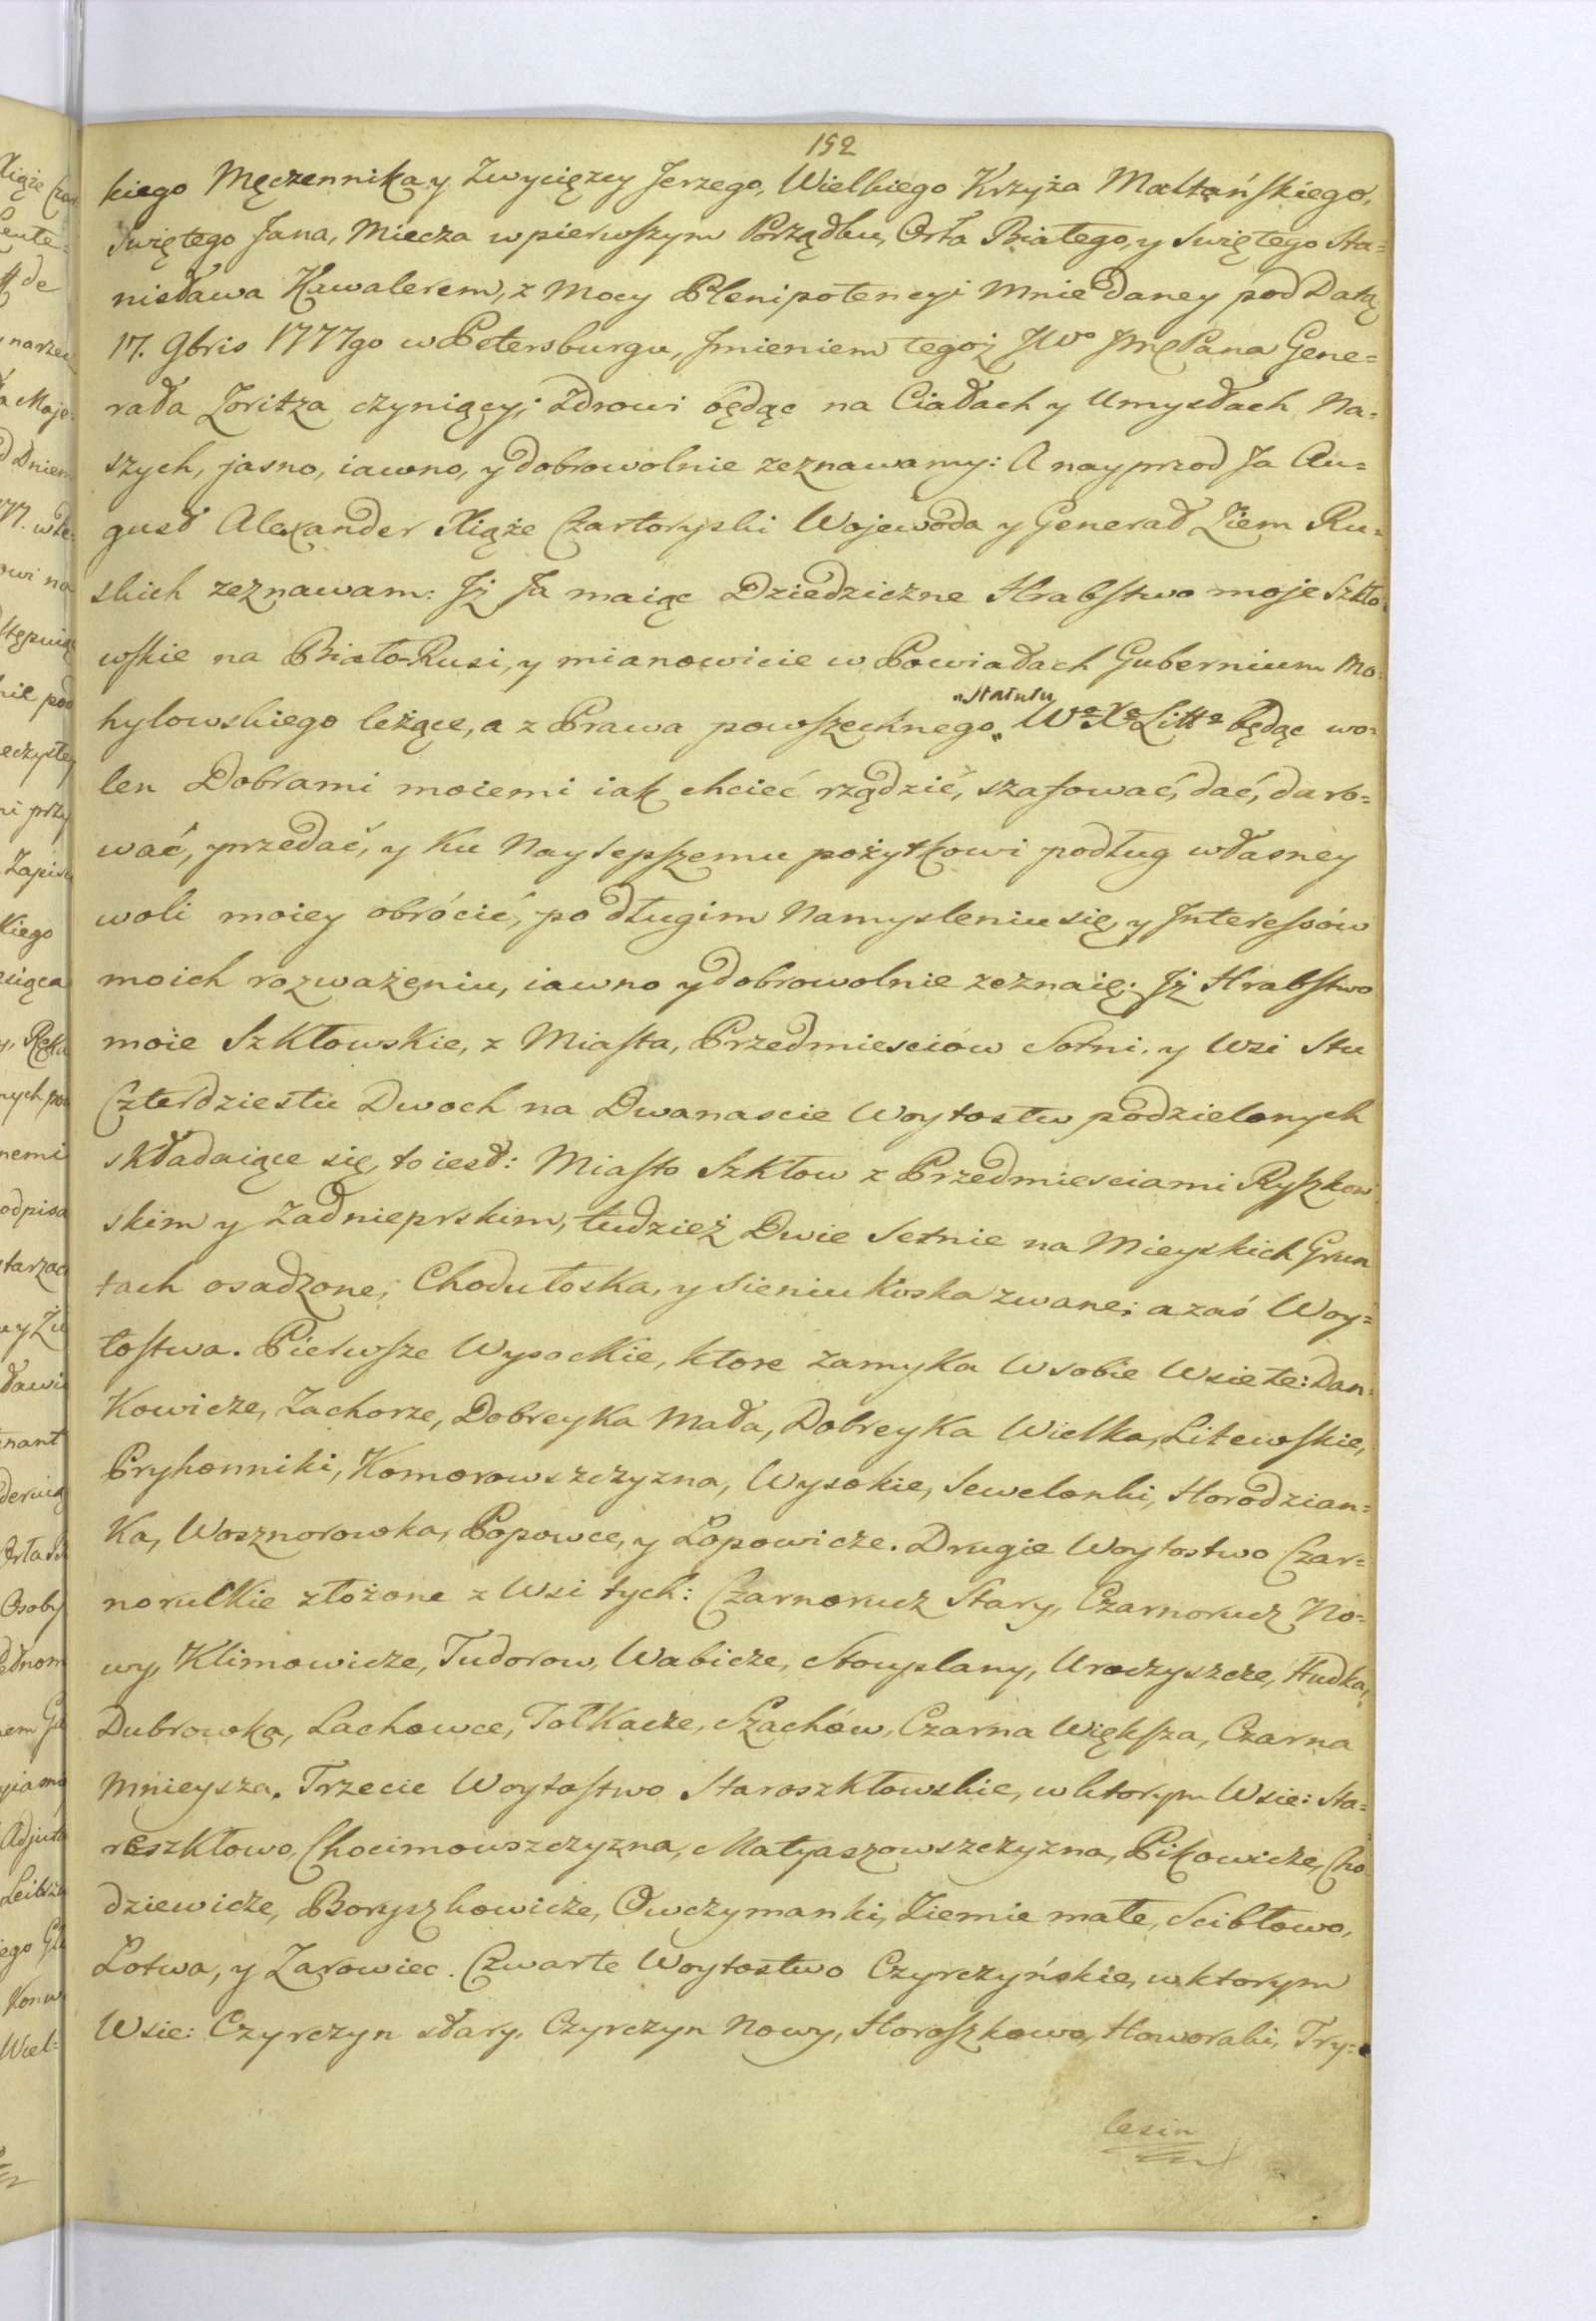 152
kiego Męczennika y Zwycięzcy Jerzego, Wielkiego Krzyża Maltańskiego,
Swiętego Jana, Miecza w pierwszym Porządku, Orła Białego, y Swiętego Sta=
nisława Kawalerem, z Mocy Plenipotencyi Mnie daney pod Datą
17. 9bris 1777go w Petersburgu, Jmieniem tegoż JWo Jmę Pana Gene=
rała Zoritza czyniący; Zdrowi będąc na Ciałach y Umysłach Na=
szych, jasno, iawno, y dobrowolnie zeznawamy: A nayprzod Ja Au=
gust Alexander Xiąże Czartoryski Wojewoda y Generał Ziem Ru=
skich zeznawam: Jż Ja maiąc Dziedziczne Hrabstwo moje Szkło
wskie na Biało-Rusi, y mianowicie w Powiatach Gubernium Mo=
hylowskiego leżące, a z Prawa powszechnego „Statutu„ Wo Xo Litto będąc wo=
len Dobrami moiemi iak chcieć rządzić, szafować, dać, daro=
wać, przedać, y ku Naylepszemu pożytkowi podług własney
woli moiey obrócić, po długim Namysleniu się, y Jnteressów
moich rozważeniu, iawno y dobrowolnie zeznaię: Jż Hrabstwo
moie Szkłowskie, z Miasta, Przedmiesciow Sotni, y Wsi Stu
Czterdziestu Dwoch na Dwanascie Woytostw podzielonych
składaiące się, to iest: Miasto Szkłow z Przedmiesciami Ryszkow
skim y Zadnieprskim, tudzież Dwie Setnie na Mieyskich Grun
tach osadzone; Chodułoska, y Sieniukoska zwane; a zaś Woy=
tostwa. Pierwsze Wysockie, ktore zamyka W sobie Wsie te: Dan=
Kowicze, Zachorze, Dobreyka Mała, Dobreyka Wielka, Litewskie,
Pryhonniki, Komorowszczyzna, Wysokie, Sewelonki, Horodzian=
Ka, Wosznorowka, Popowce, y Łopowicze. Drugie Woytostwo Czar=
noruckie złożone z Wsi tych: Czarnorucz Stary, Czarnorucz No=
wy, Klimowicze, Tudorow, Wabicze, Stouplany, Uroczyszcze, Hudka,
Dubrowka, Lachowce, Tołkacze, Szachów, Czarna Większa, Czarna
Mnieysza. Trzecie Woytostwo Staroszkłowskie, w ktorym Wsie: Sta=
roszkłowo, Chocimowszczyzna, Matyaszowszczyzna, Pikowicze, Cho
dziewicze, Boryszkowicze, Owczymanki, Ziemie małe, Scibłowo,
Łotwa, y Zarowiec. Czwarte Woytostwo Czyrczyńskie, w ktorym
Wsie: Czyrczyn stary, Czyrczyn Nowy, Horoszkowo, Howoraki, Try=
lesin